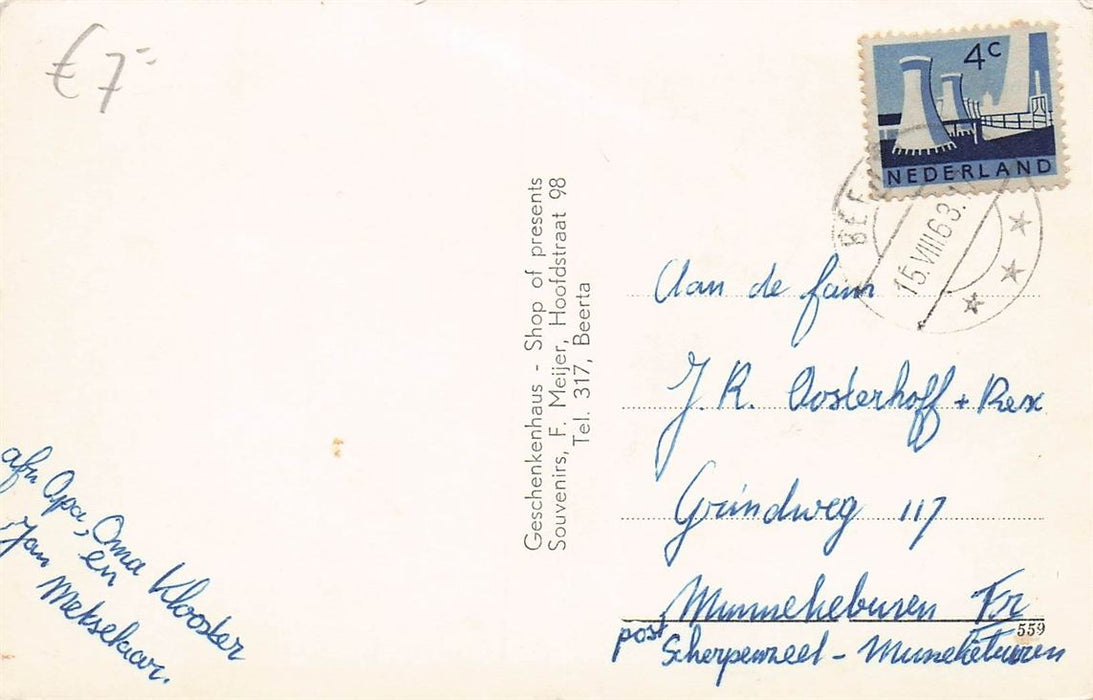 € 7-
4c
NEDERLAND
15.VIII.63.
Geschenkenhaus - Shop of presents
Souvenirs, F. Meijer, Hoofdstraat 98
Tel. 317, Beerta
Aan de fam
J. R. Oosterhoff + Rex
Grindweg 117
Munnekeburen Fr
559
post Scherpenzeel - Munneketuren
afz Opa, Oma Klooster
en
Jan